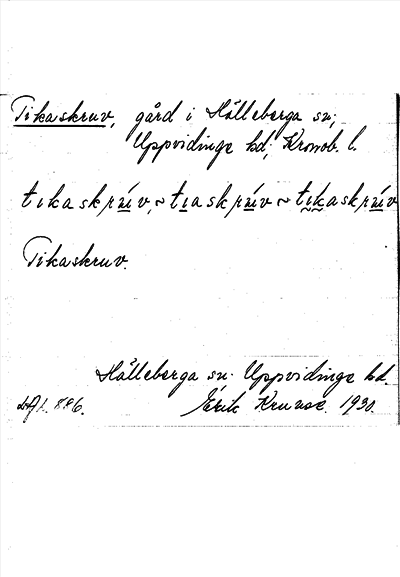 Tikaskruv, gård i Hälleberga sn;
Uppvidinge hd; Kronob. l.
tikaskrúv, ~ tiaskrúv ~ tikaskrúv
Tikaskruv.
Hälleberga sn. Uppvidinge hd.
LAL. 886. Erik Kruuse. 1930.